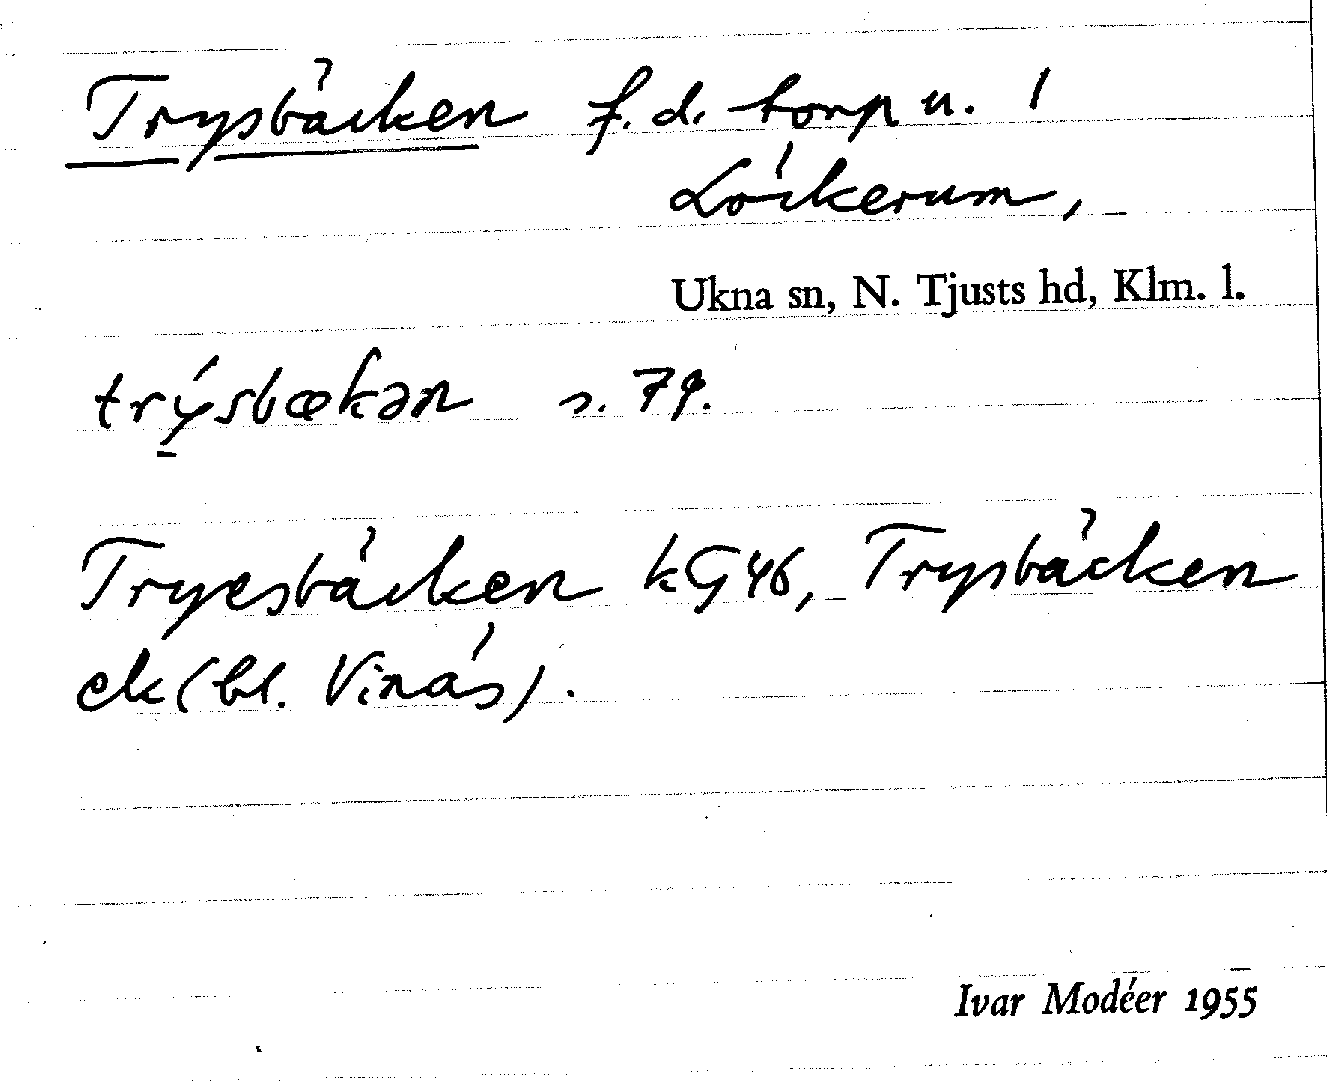 Trysbäcken f. d. torp u. 1
Löckerum,
Ukna sn, N. Tjusts hd, Klm. l.
trýsbækən s. 79.
Tryesbäcken kG46, Trysbäcken
ek (bl. Vinås).
Ivar Modéer 1955